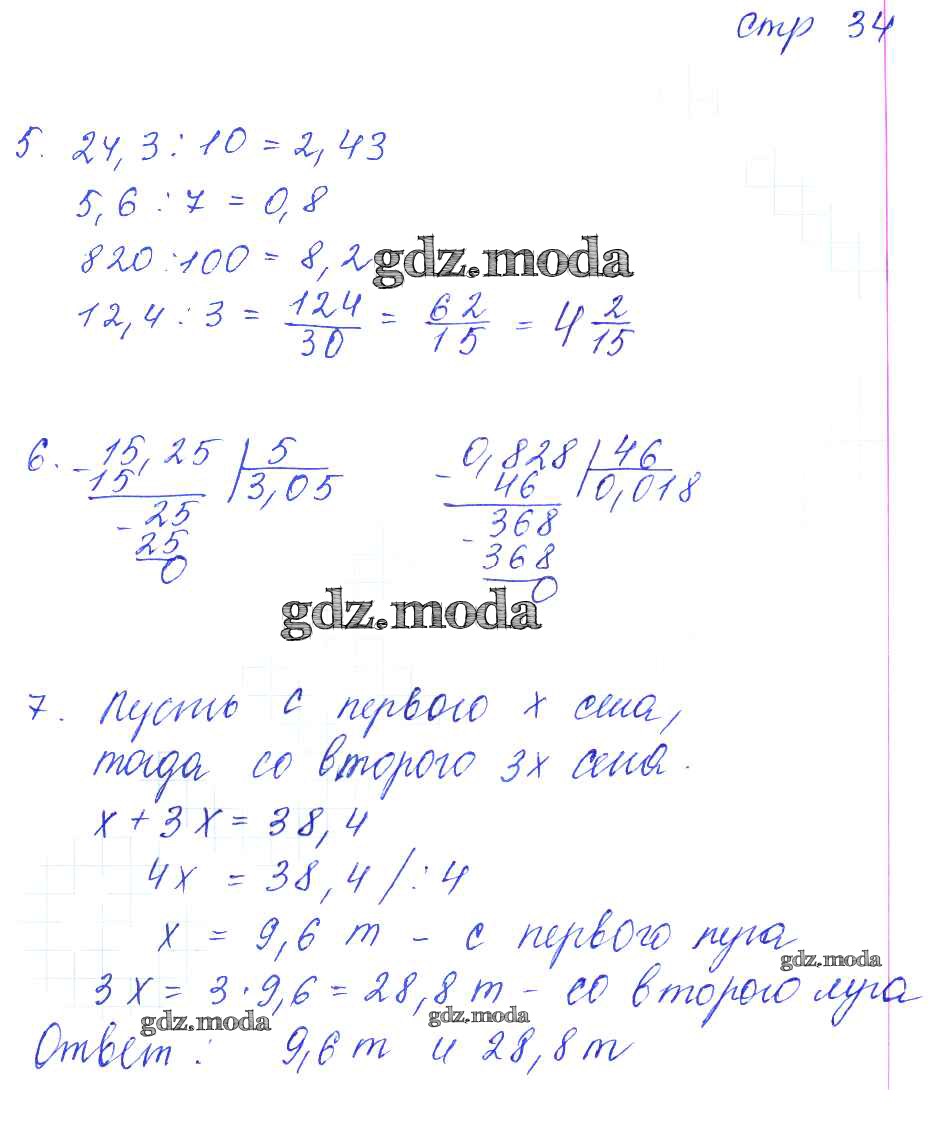 стр 34
5. 24,3 : 10 = 2,43
5,6 : 7 = 0,8
820 : 100 = 8,2
gdz.moda
12,4 : 3 = 124/30 = 62/15 = 4 2/15
6. - 15,25 | 5
15 | 3,05
- 25
25
0
- 0,828 | 46
46 | 0,018
- 368
368
0
gdz.moda
7. Пусть с первого x сена,
тогда со второго 3x сена.
x + 3x = 38,4
4x = 38,4 /: 4
x = 9,6 т - с первого луга
gdz.moda
3x = 3 · 9,6 = 28,8 т - со второго луга
gdz.moda
gdz.moda
Ответ: 9,6 т и 28,8 т